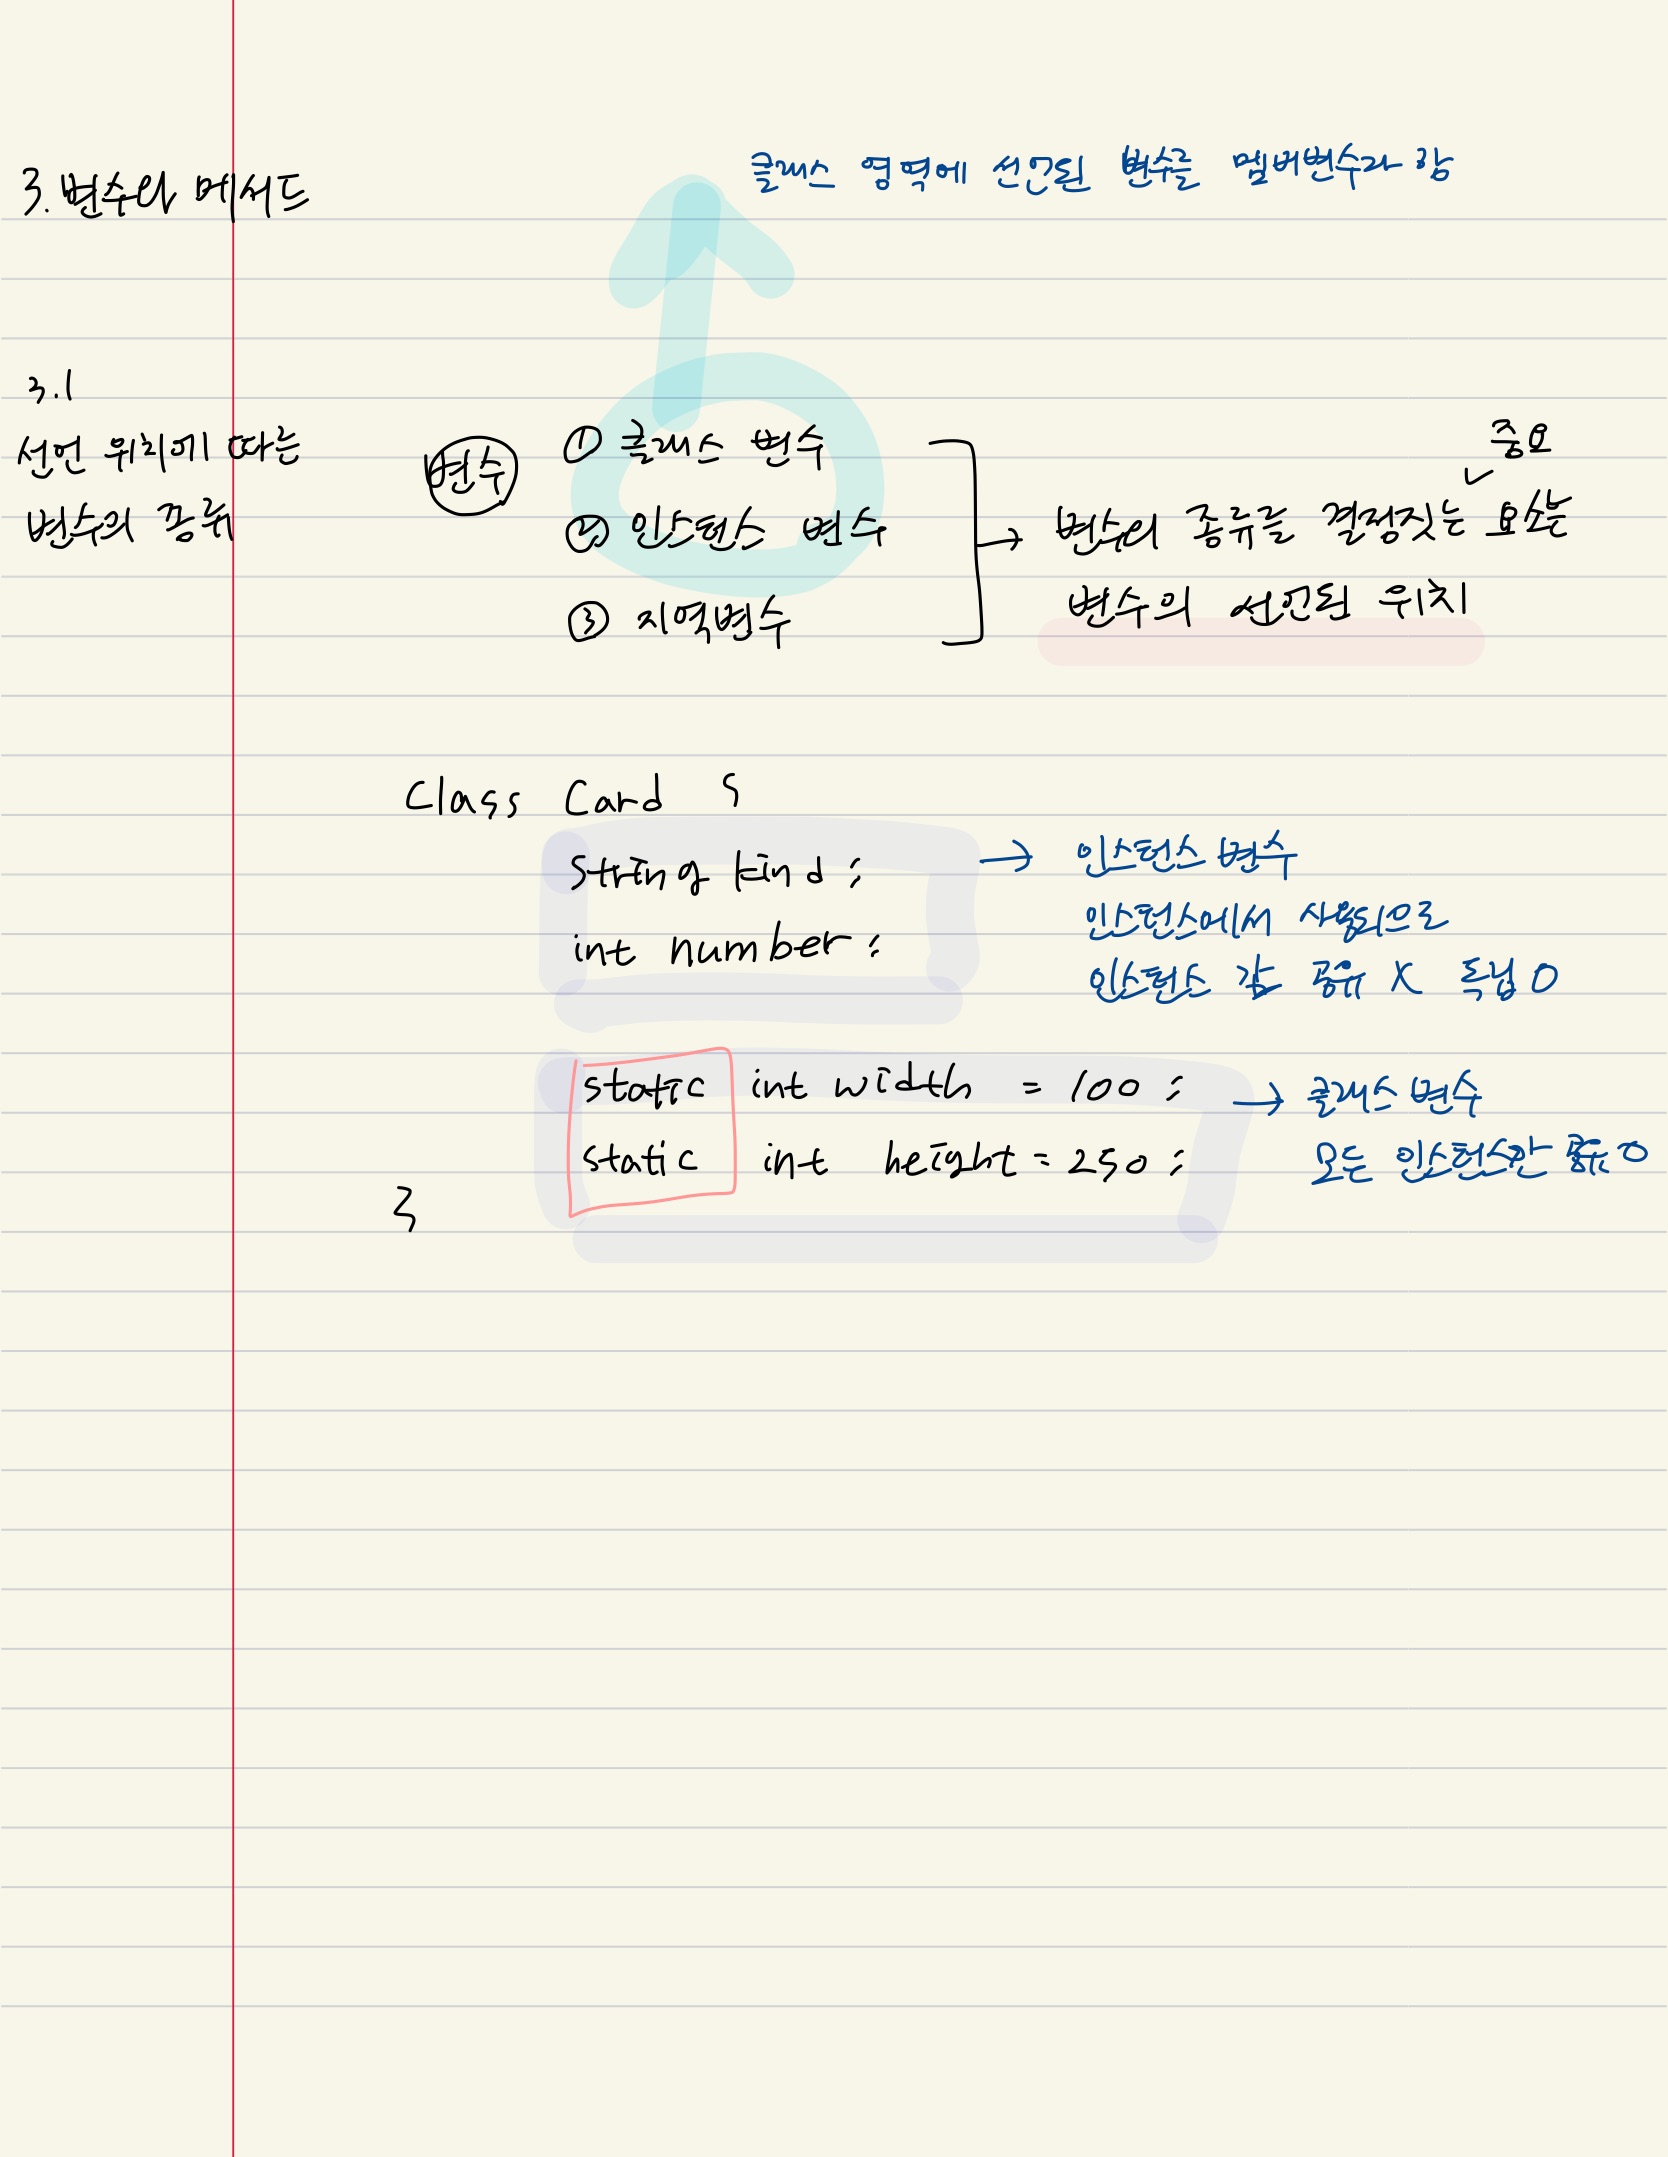 클래스 영역에 선언된 변수를 멤버변수라 함
3. 변수와 메서드
3.1
선언 위치에 따른
변수의 종류
변수
① 클래스 변수
② 인스턴스 변수
③ 지역변수
중요
→ 변수의 종류를 결정짓는 요소는
변수의 선언된 위치
Class Card {
String kind;
int number;
→ 인스턴스 변수
인스턴스에서 사용되므로
인스턴스 값 공유 X 독립 O
static int width = 100;
static int height = 250;
→ 클래스 변수
모든 인스턴스간 공유 O
}